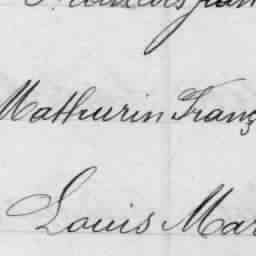 Mathurin Franç
Louis Mar